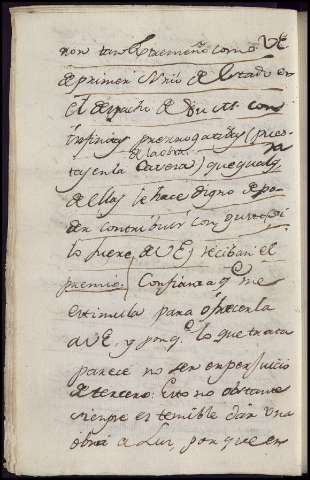 non tan extremeño como VE
de primer Mrio de Estado en
el despacho de
infinitas prerrogatibas (pues-
de la obra
tas en la Cavera) que qualq.ª
de ellas le hace digno de po-
der contribuir con gusto, si
lo fuere, de VE, reciban el
premio. Confianza q.e me
estimula para ofrecerla
a VE, y porq.e lo que trata
parece no ser en perjuicio
de tercero: Esto no obstante
siempre es temible dar una
obra a Luz, porque en